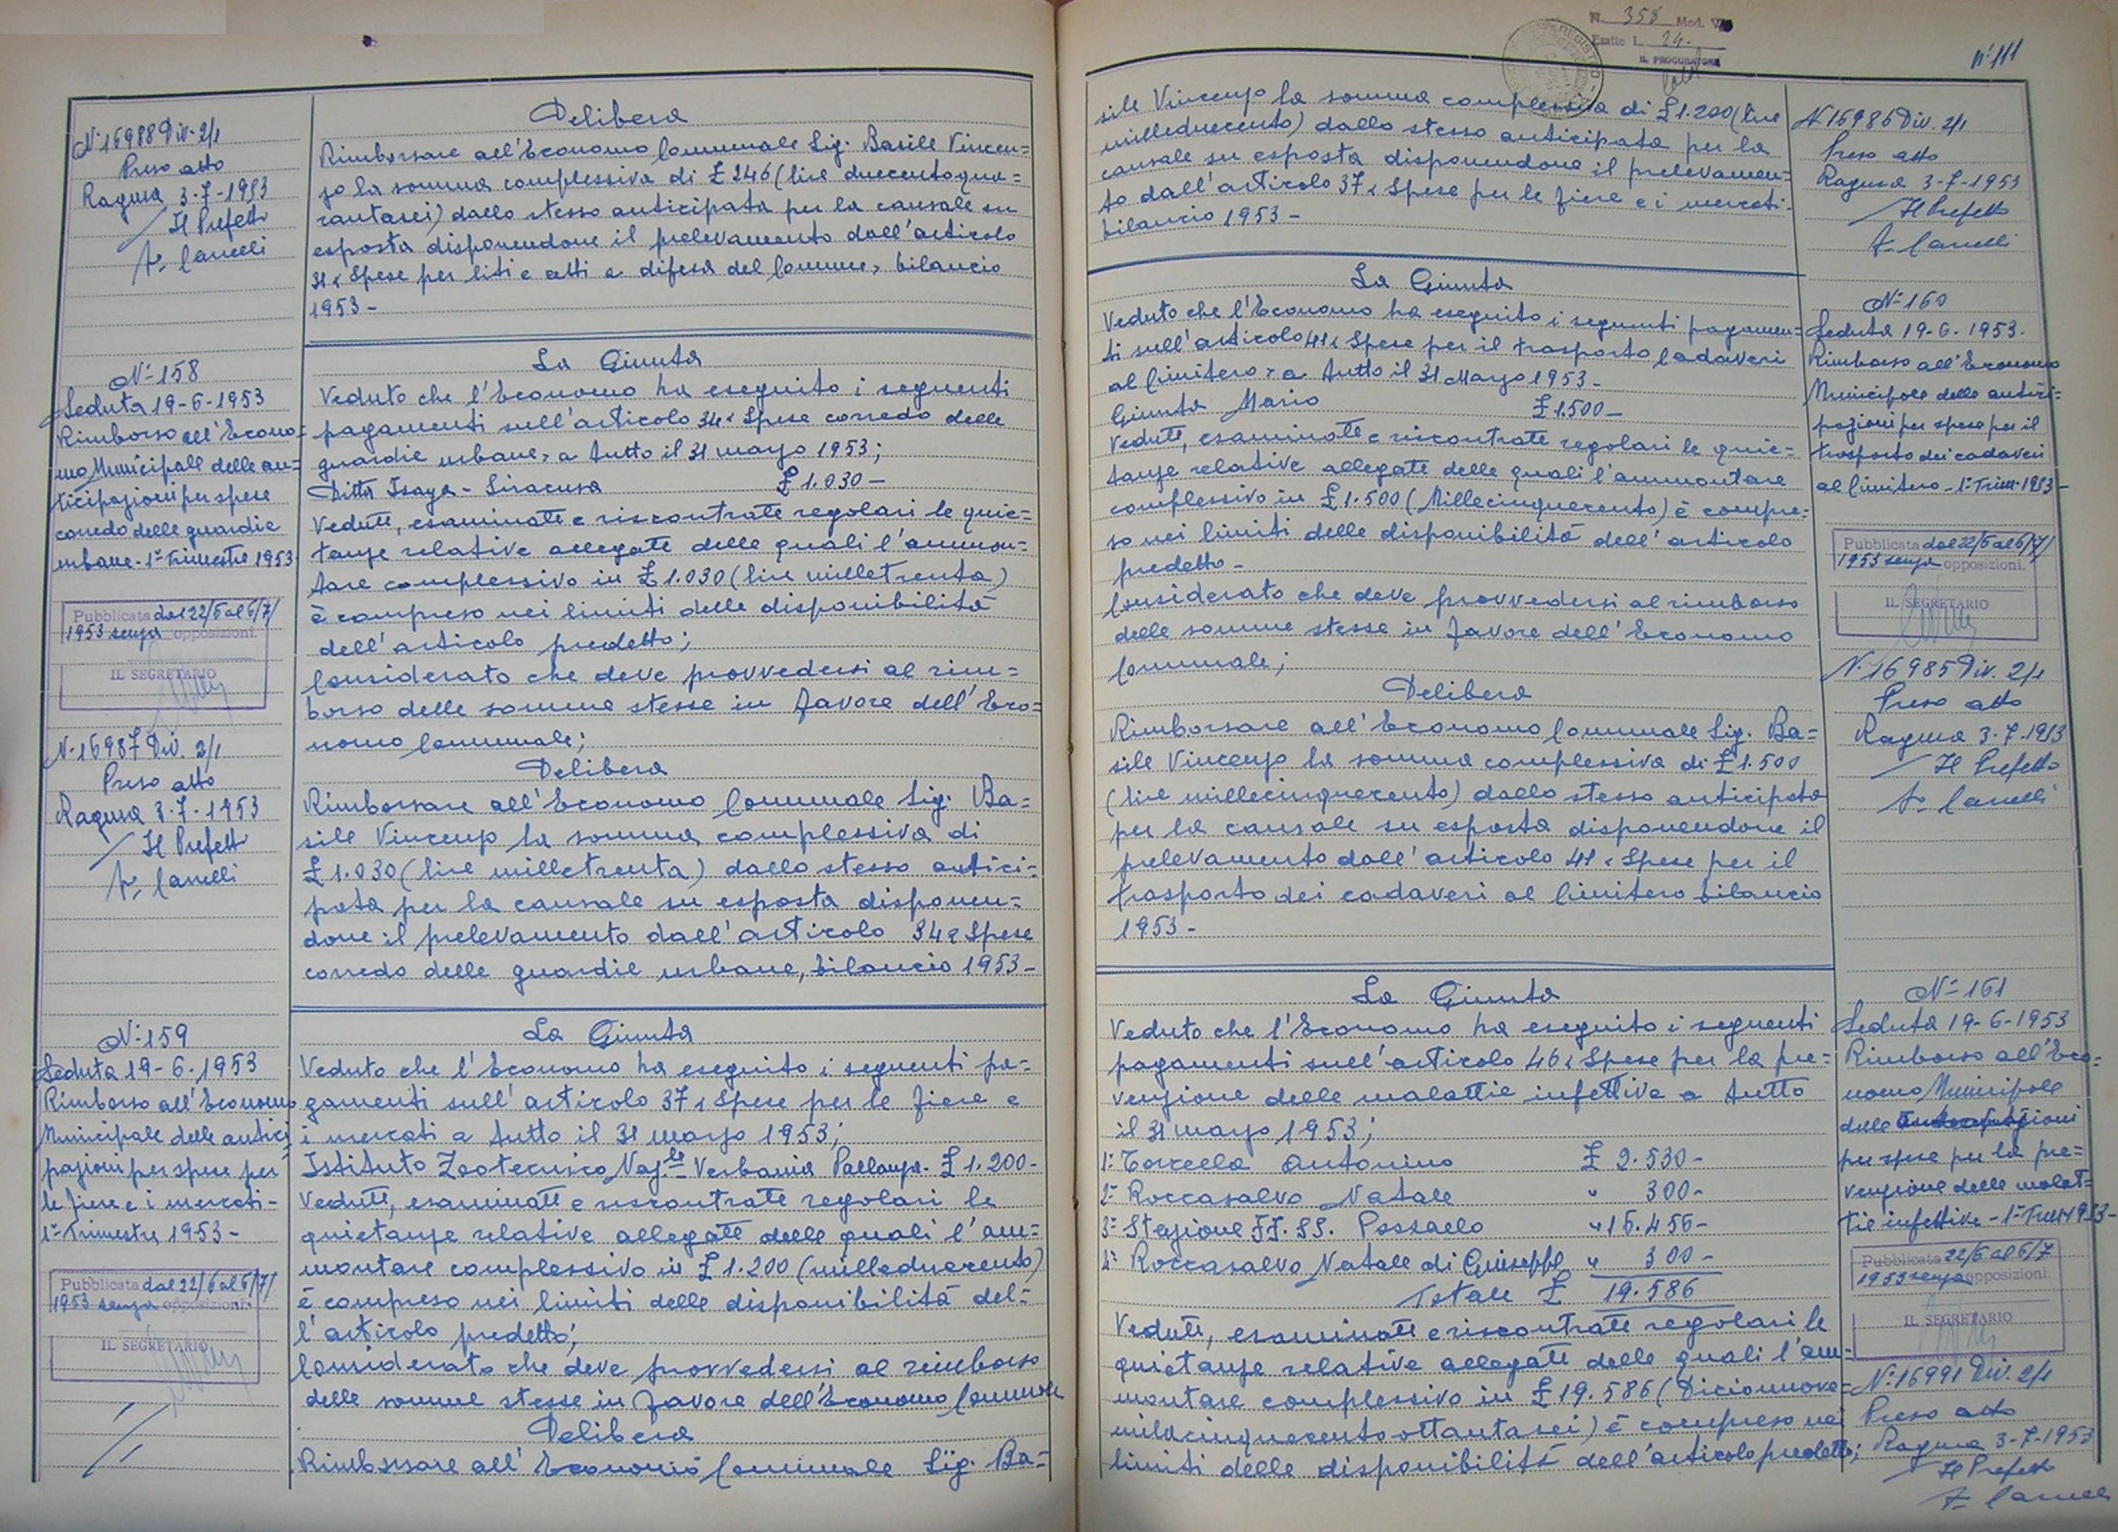 N. 358 Mod. V
Esatte L. 24.
IL PROCURATORE
n° 111
N° 16988 Div. 2/1
Preso atto
Ragusa 3-7-1953
Il Prefetto
Delibera
Rimborsare all'Economo Comunale Sig. Basile Vincen=
zo la somma complessiva di £ 246 (lire duecentoqua=
rantasei) dallo stesso anticipata per la causale su
esposta disponendone il prelevamento dall'articolo
31 "Spese per liti e atti a difesa del Comune, bilancio
1953 -
N° 158
Seduta 19-6-1953
Rimborso all'Econo=
mo Municipale delle an=
ticipazioni per spese
corredo delle guardie
urbane - 1° Trimestre 1953 -
Pubblicata dal 22/6 al 6/7/
1953 senza opposizioni
IL SEGRETARIO
N. 16987 Div. 2/1
Preso atto
Ragusa 3-7-1953
Il Prefetto
La Giunta
Veduto che l'Economo ha eseguito i seguenti
pagamenti sull'articolo 34 "Spese corredo delle
guardie urbane, a tutto il 31 marzo 1953;
Ditta Isaya - Siracusa £ 1.030 -
Vedute, esaminate e riscontrate regolari le quie=
tanze relative allegate delle quali l'ammon=
tare complessivo in £ 1.030 (lire milletrenta)
è compreso nei limiti delle disponibilità
dell'articolo predetto;
Considerato che deve provvedersi al rim=
borso delle somme stesse in favore dell'Eco=
nomo Comunale;
Delibera
Rimborsare all'Economo Comunale Sig. Ba=
sile Vincenzo la somma complessiva di
£ 1.030 (lire milletrenta) dallo stesso antici=
pata per la causale su esposta disponen=
done il prelevamento dall'articolo 34 "Spese
corredo delle guardie urbane, bilancio 1953 -
N° 159
Seduta 19-6-1953
Rimborso all'Economo
Municipale delle antici
pazioni per spese per
le fiere e i mercati -
1° Trimestre 1953 -
Pubblicata dal 22/6 al 6/7/
1953 senza opposizioni
IL SEGRETARIO
La Giunta
Veduto che l'Economo ha eseguito i seguenti pa=
gamenti sull'articolo 37 "Spese per le fiere e
i mercati a tutto il 31 marzo 1953;
Istituto Zootecnico Naz.le Verbania Pallanza. £ 1.200 -
Vedute, esaminate e riscontrate regolari le
quietanze relative allegate delle quali l'am=
montare complessivo in £ 1.200 (milleduecento)
è compreso nei limiti delle disponibilità del=
l'articolo predetto;
Considerato che deve provvedersi al rimborso
delle somme stesse in favore dell'Economo Comunale
Delibera
Rimborsare all'Economo Comunale Sig. Ba=
sile Vincenzo la somma complessiva di £ 1.200 (lire
milleduecento) dallo stesso anticipata per la
causale su esposta disponendone il prelevamen=
to dall'articolo 37 "Spese per le fiere e i mercati -
bilancio 1953 -
N 16986 Div. 2/1
Preso atto
Ragusa 3-7-1953
Il Prefetto
La Giunta
Veduto che l'Economo ha eseguito i seguenti pagamen=
ti sull'articolo 41 "Spese per il trasporto Cadaveri
al Cimitero, a tutto il 31 Marzo 1953 -
Giunta Mario £ 1.500 -
Vedute, esaminate e riscontrate regolari le quie=
tanze relative allegate delle quali l'ammontare
complessivo in £ 1.500 (Millecinquecento) è compre=
so nei limiti delle disponibilità dell'articolo
predetto -
Considerato che deve provvedersi al rimborso
delle somme stesse in favore dell'Economo
Comunale;
Delibera
Rimborsare all'Economo Comunale Sig. Ba=
sile Vincenzo la somma complessiva di £ 1.500
(lire millecinquecento) dallo stesso anticipata
per la causale su esposta disponendone il
prelevamento dall'articolo 41 "Spese per il
trasporto dei cadaveri al Cimitero bilancio
1953 -
N° 160
Seduta 19-6-1953.
Rimborso all'Economo
Municipale delle antici=
pazioni per spese per il
trasporto dei cadaveri
al Cimitero - 1° Trim. 1953 -
Pubblicata dal 22/6 al 6/7/
1953 senza opposizioni.
IL SEGRETARIO
N. 16985 Div. 2/1
Preso atto
Ragusa 3-7-1953
Il Prefetto
La Giunta
Veduto che l'Economo ha eseguito i seguenti
pagamenti sull'articolo 46 "Spese per la pre=
venzione delle malattie infettive a tutto
il 31 marzo 1953;
1° Torcella Antonino £ 2.530 -
2° Roccasalvo Natale " 300 -
3° Stazione FF. SS. Pozzallo " 16.456 -
4° Roccasalvo Natale di Giuseppe " 300 -
Totale £ 19.586
Vedute, esaminate e riscontrate regolari le
quietanze relative allegate delle quali l'am=
montare complessivo in £ 19.586 (Diciannove=
milacinquecentottantasei) è compreso nei
limiti delle disponibilità dell'articolo predetto;
N° 161
Seduta 19-6-1953
Rimborso all'Eco=
nomo Municipale
delle Anticipazioni
per spese per la pre=
venzione delle malat=
tie infettive - 1° Trim 1953 -
Pubblicata 22/6 al 6/7
1953 senza opposizioni.
IL SEGRETARIO
N° 16991 Div. 2/1
Preso atto
Ragusa 3-7-1953
Il Prefetto